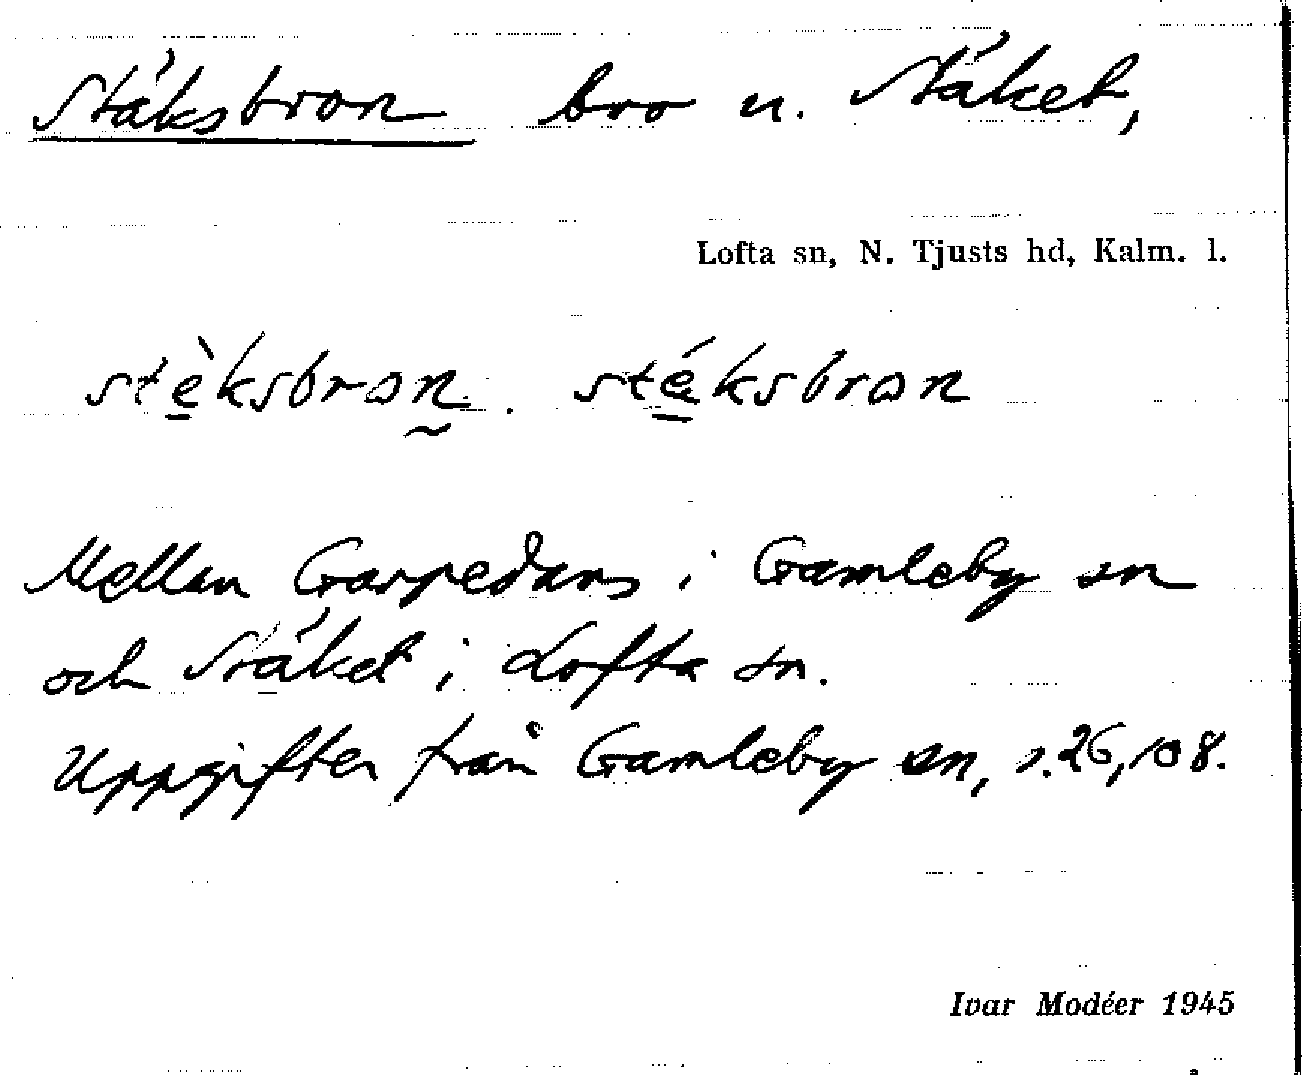 Stäksbron bro u. Stäket,
Lofta sn, N. Tjusts hd, Kalm. l.
stè̱ksbron̰. sté̱ksbron
Mellan Garpedans i Gamleby sn
och Stäket i Lofta sn.
Uppgifter från Gamleby sn, s. 26, 108.
Ivar Modéer 1945